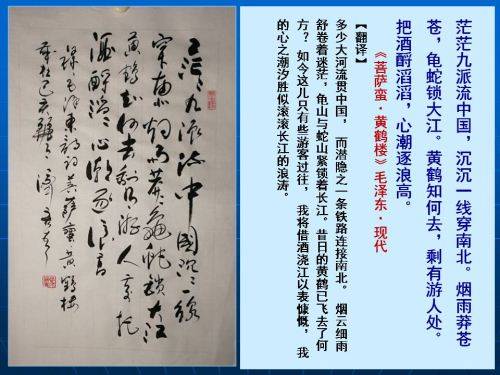 茫茫九派流中国,沉沉一线穿南北。烟雨莽苍
苍,龟蛇锁大江。黄鹤知何去,剩有游人处。
把酒酹滔滔,心潮逐浪高。
《菩萨蛮·黄鹤楼》毛泽东·现代
【翻译】
多少大河流贯中国, 而潜隐之一条铁路连接南北。 烟云细雨
舒卷着迷茫,龟山与蛇山紧锁着长江。昔日的黄鹤已飞去了何
方?如今这儿只有些游客过往, 我将借酒浇江以表慷慨, 我
的心之潮汐胜似滚滚长江的浪涛。
茫〻九派流中国沉〻一线
穿南北烟雨莽〻龟蛇锁大江
黄鹤知何去剩有游人处把
酒酹滔〻心潮逐浪高
毛泽东词菩萨蛮黄鹤楼